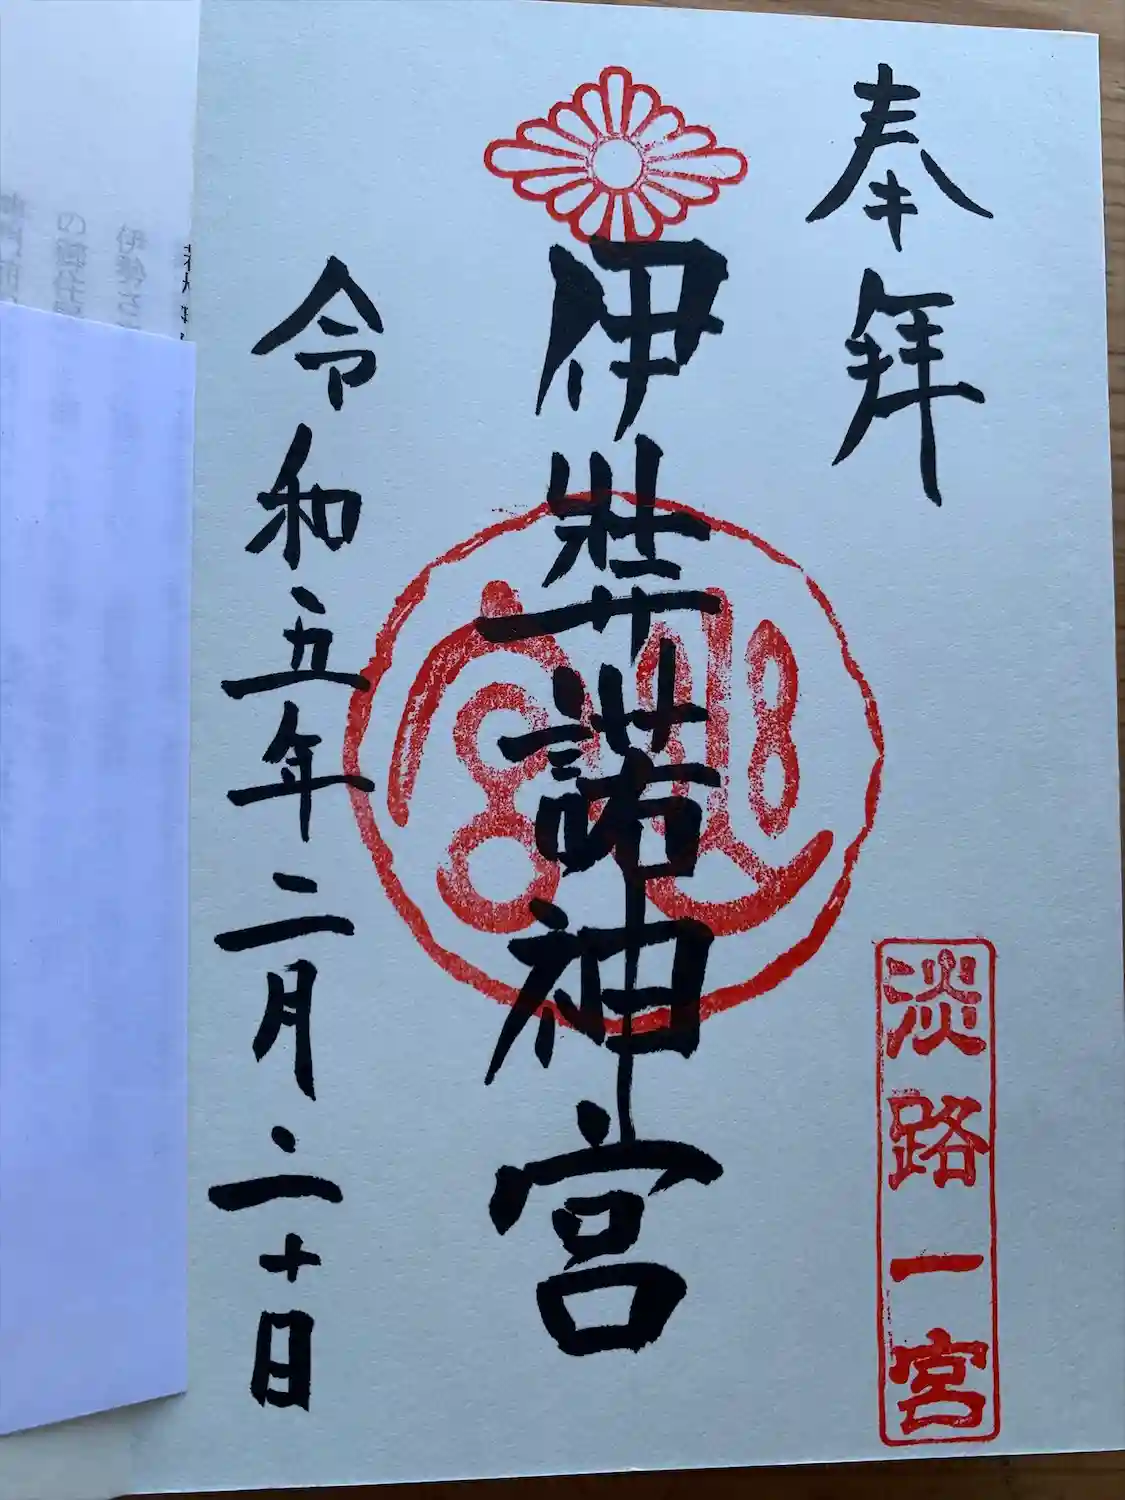 奉拝
淡路一宮
伊弉諾神宮
令和五年二月二十日
伊勢さ
の御住